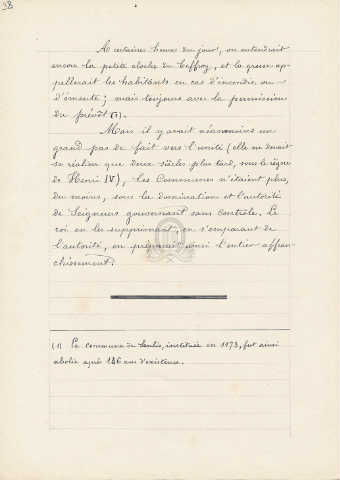 38
A certaines heures du jour, on entendrait
encore la petite cloche du Beffroy, et la grosse ap-
pellerait les habitants en cas d'incendie ou
d'émeute; mais toujours avec la permission
du prévôt (1).
Mais il y avait néanmoins un
grand pas de fait vers l'unité (elle ne devait
se réaliser que deux siècles plus tard, sous le règne
de Henri IV), les Communes n'étaient plus,
du moins, sous la domination et l'autorité
de Seigneurs gouvernant sans contrôle. Le
roi en les supprimant, en s'emparant de
l'autorité, en préparait ainsi l'entier affran-
chissement.
(1) La commune de Senlis, instituée en 1173, fut ainsi
abolie après 146 ans d'existence.